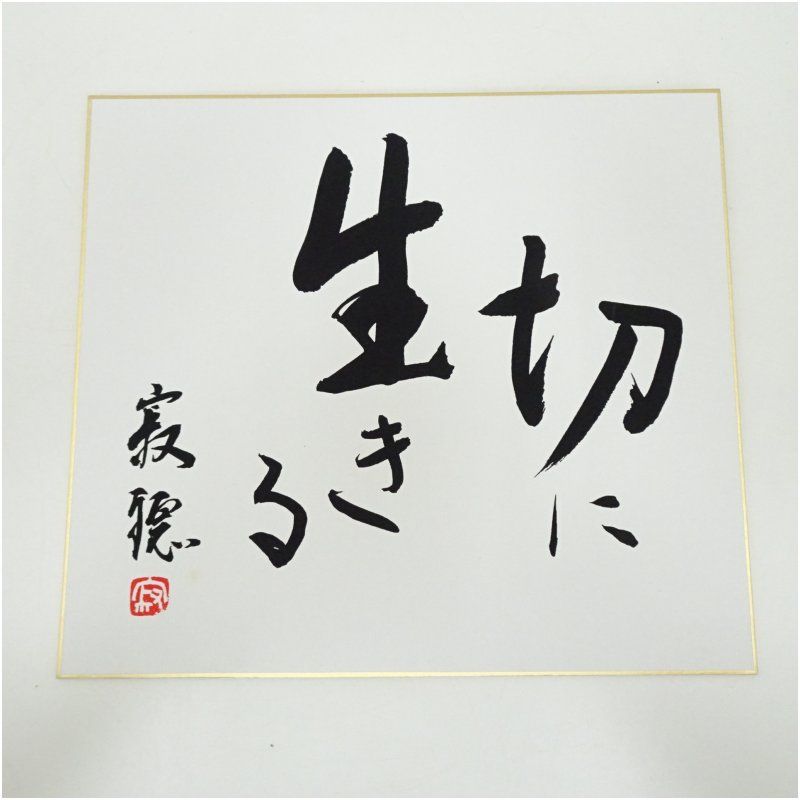 切に
生きる
寂聴
寂